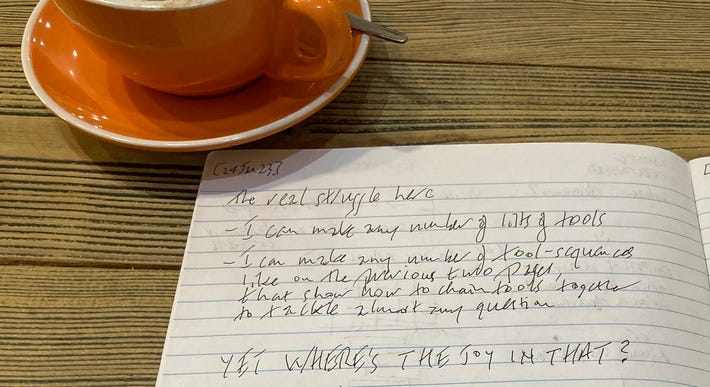 [24 Jan 23]
The real struggle here
- I can make any number of lists of tools
- I can make any number of tool-sequences
like on the previous two pages,
that show how to chain tools together
to tackle almost any question
YET WHERE'S THE JOY IN THAT?
[